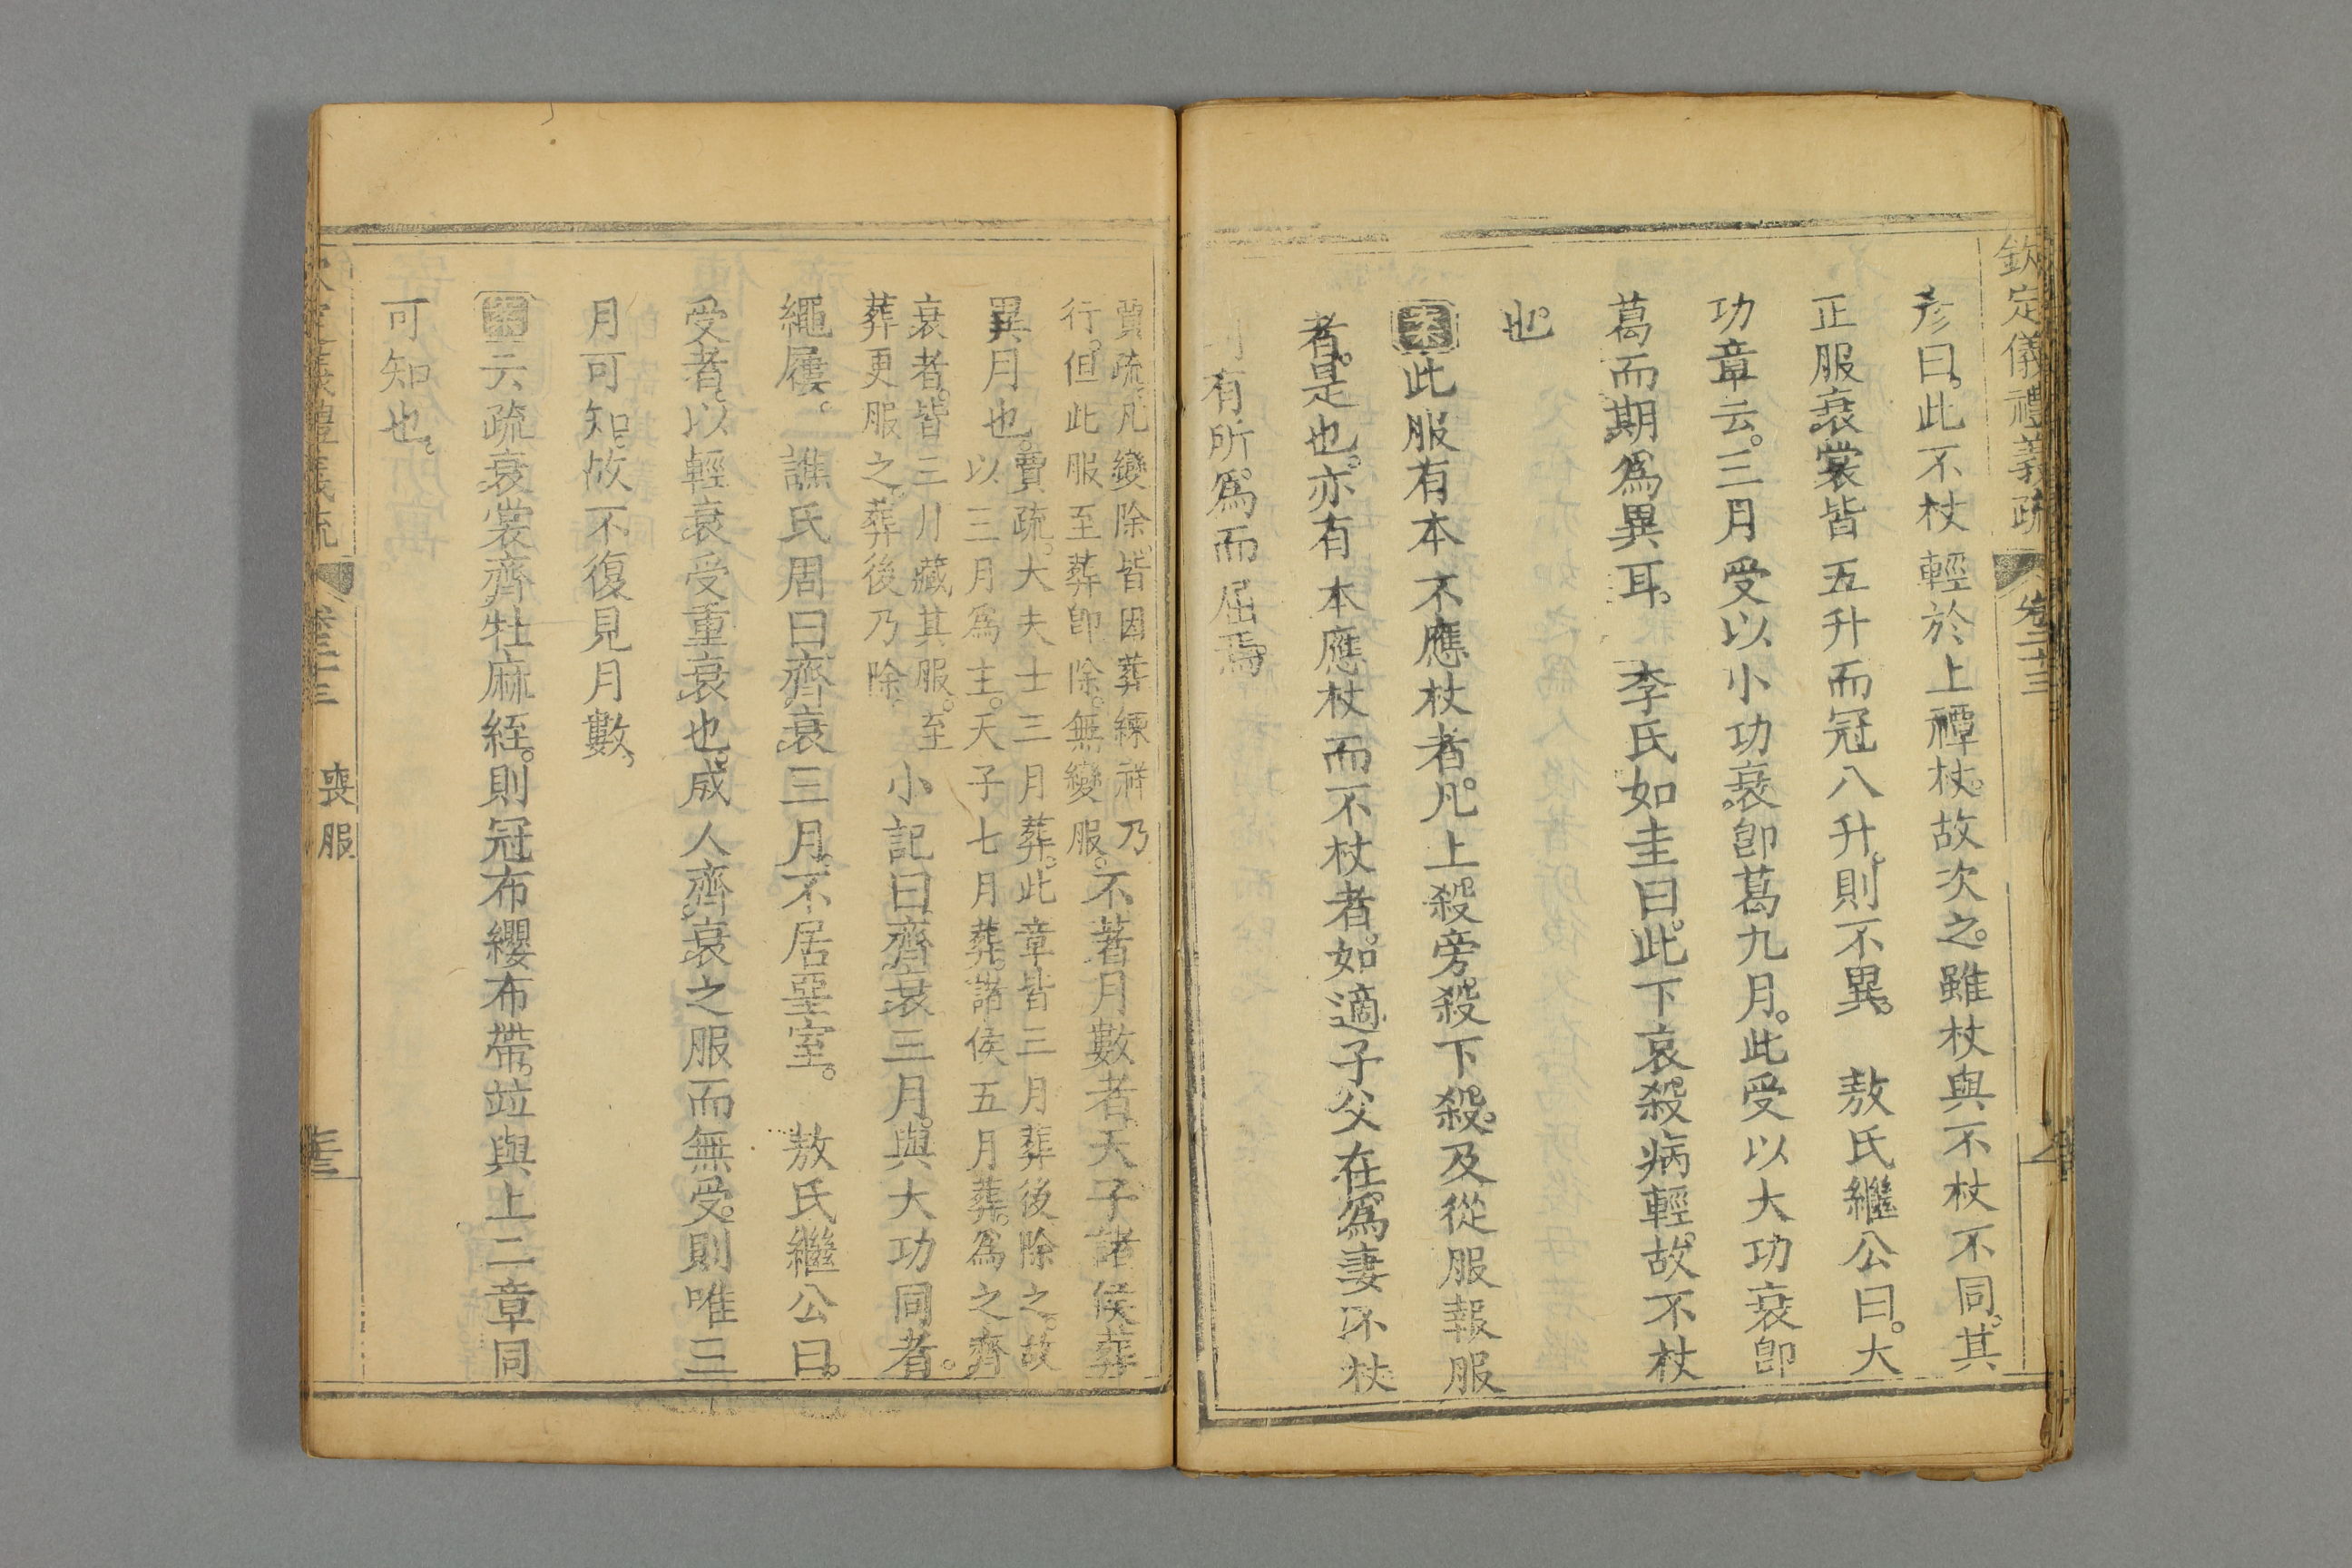 欽定儀禮義疏 卷二十三
彥曰。此不杖輕於上禫杖。故次之。雖杖與不杖不同。其
正服衰裳皆五升而冠八升。則不異。 敖氏繼公曰。大
功章云。三月受以小功衰。卽葛九月。此受以大功衰卽
葛而期爲異耳。 李氏如圭曰。此下哀殺病輕。故不杖
也。
案此服有本不應杖者。凡上殺旁殺下殺。及從服報服
者。是也。亦有本應杖而不杖者。如適子父在爲妻不杖
有所爲而屈焉
賈疏。凡變除。皆因葬練祥乃
行。但此服至葬卽除。無變服。
不著月數者。天子諸侯葬
異月也。
賈疏。大夫士三月葬。此章皆三月葬後除之。故
以三月爲主。天子七月葬。諸侯五月葬。爲之齊
衰者。皆三月藏其服。至
葬更服之。葬後乃除。
小記曰齊衰三月。與大功同者。
繩屨。 譙氏周曰齊衰三月。不居堊室。 敖氏繼公曰。
受者。以輕衰受重衰也。成人齊衰之服而無受。則唯三
月可知。故不復見月數。
案云疏衰裳齊牡麻絰。則冠布纓布帶。竝與上二章同
可知也。
喪服